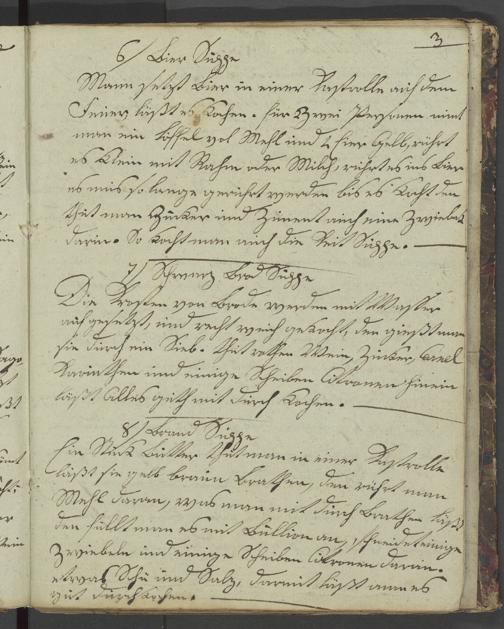 3
6/ Bier Suppe
Mann setzt Bier in einer Kastrolle auf dem
Feuer läßt es Kochen. für Zwei Personen nimt
man ein löffel vol Mehl und 1 Eier Gelb, rührt
es Klein mit Rahm oder Milch, rührt es ins Bier
es mus so lange gerührt werden bis es Kocht den
thut man Zucker und Ziment auch eine Zwiebel
darin. So kocht man auch die Suppe.
7/ Schwarz Brod Suppe
Die Krosten von Brode werden mit Waßer
auf gesetzt, und recht weich gekocht, den gießt man
sie durch ein Sieb. thut rothen Wein, Zucker, Caneel
Karinthen und einige Scheiben Citronen hinein
läßt Alles guth mit durch Kochen.
8/ Braun Suppe
Ein Stück Butter thut man in einer Kastrolle
läßt sie gelb braun Brathen, den rührt man
Mehl daran, was man mit durch Brathen läßt
den füllt man es mit Bullion an, schneidet einige
Zwiebeln und einige Scheiben Citronen daran.
etwas Schü und Salz, darmit läßt man es
gut durchkochen.